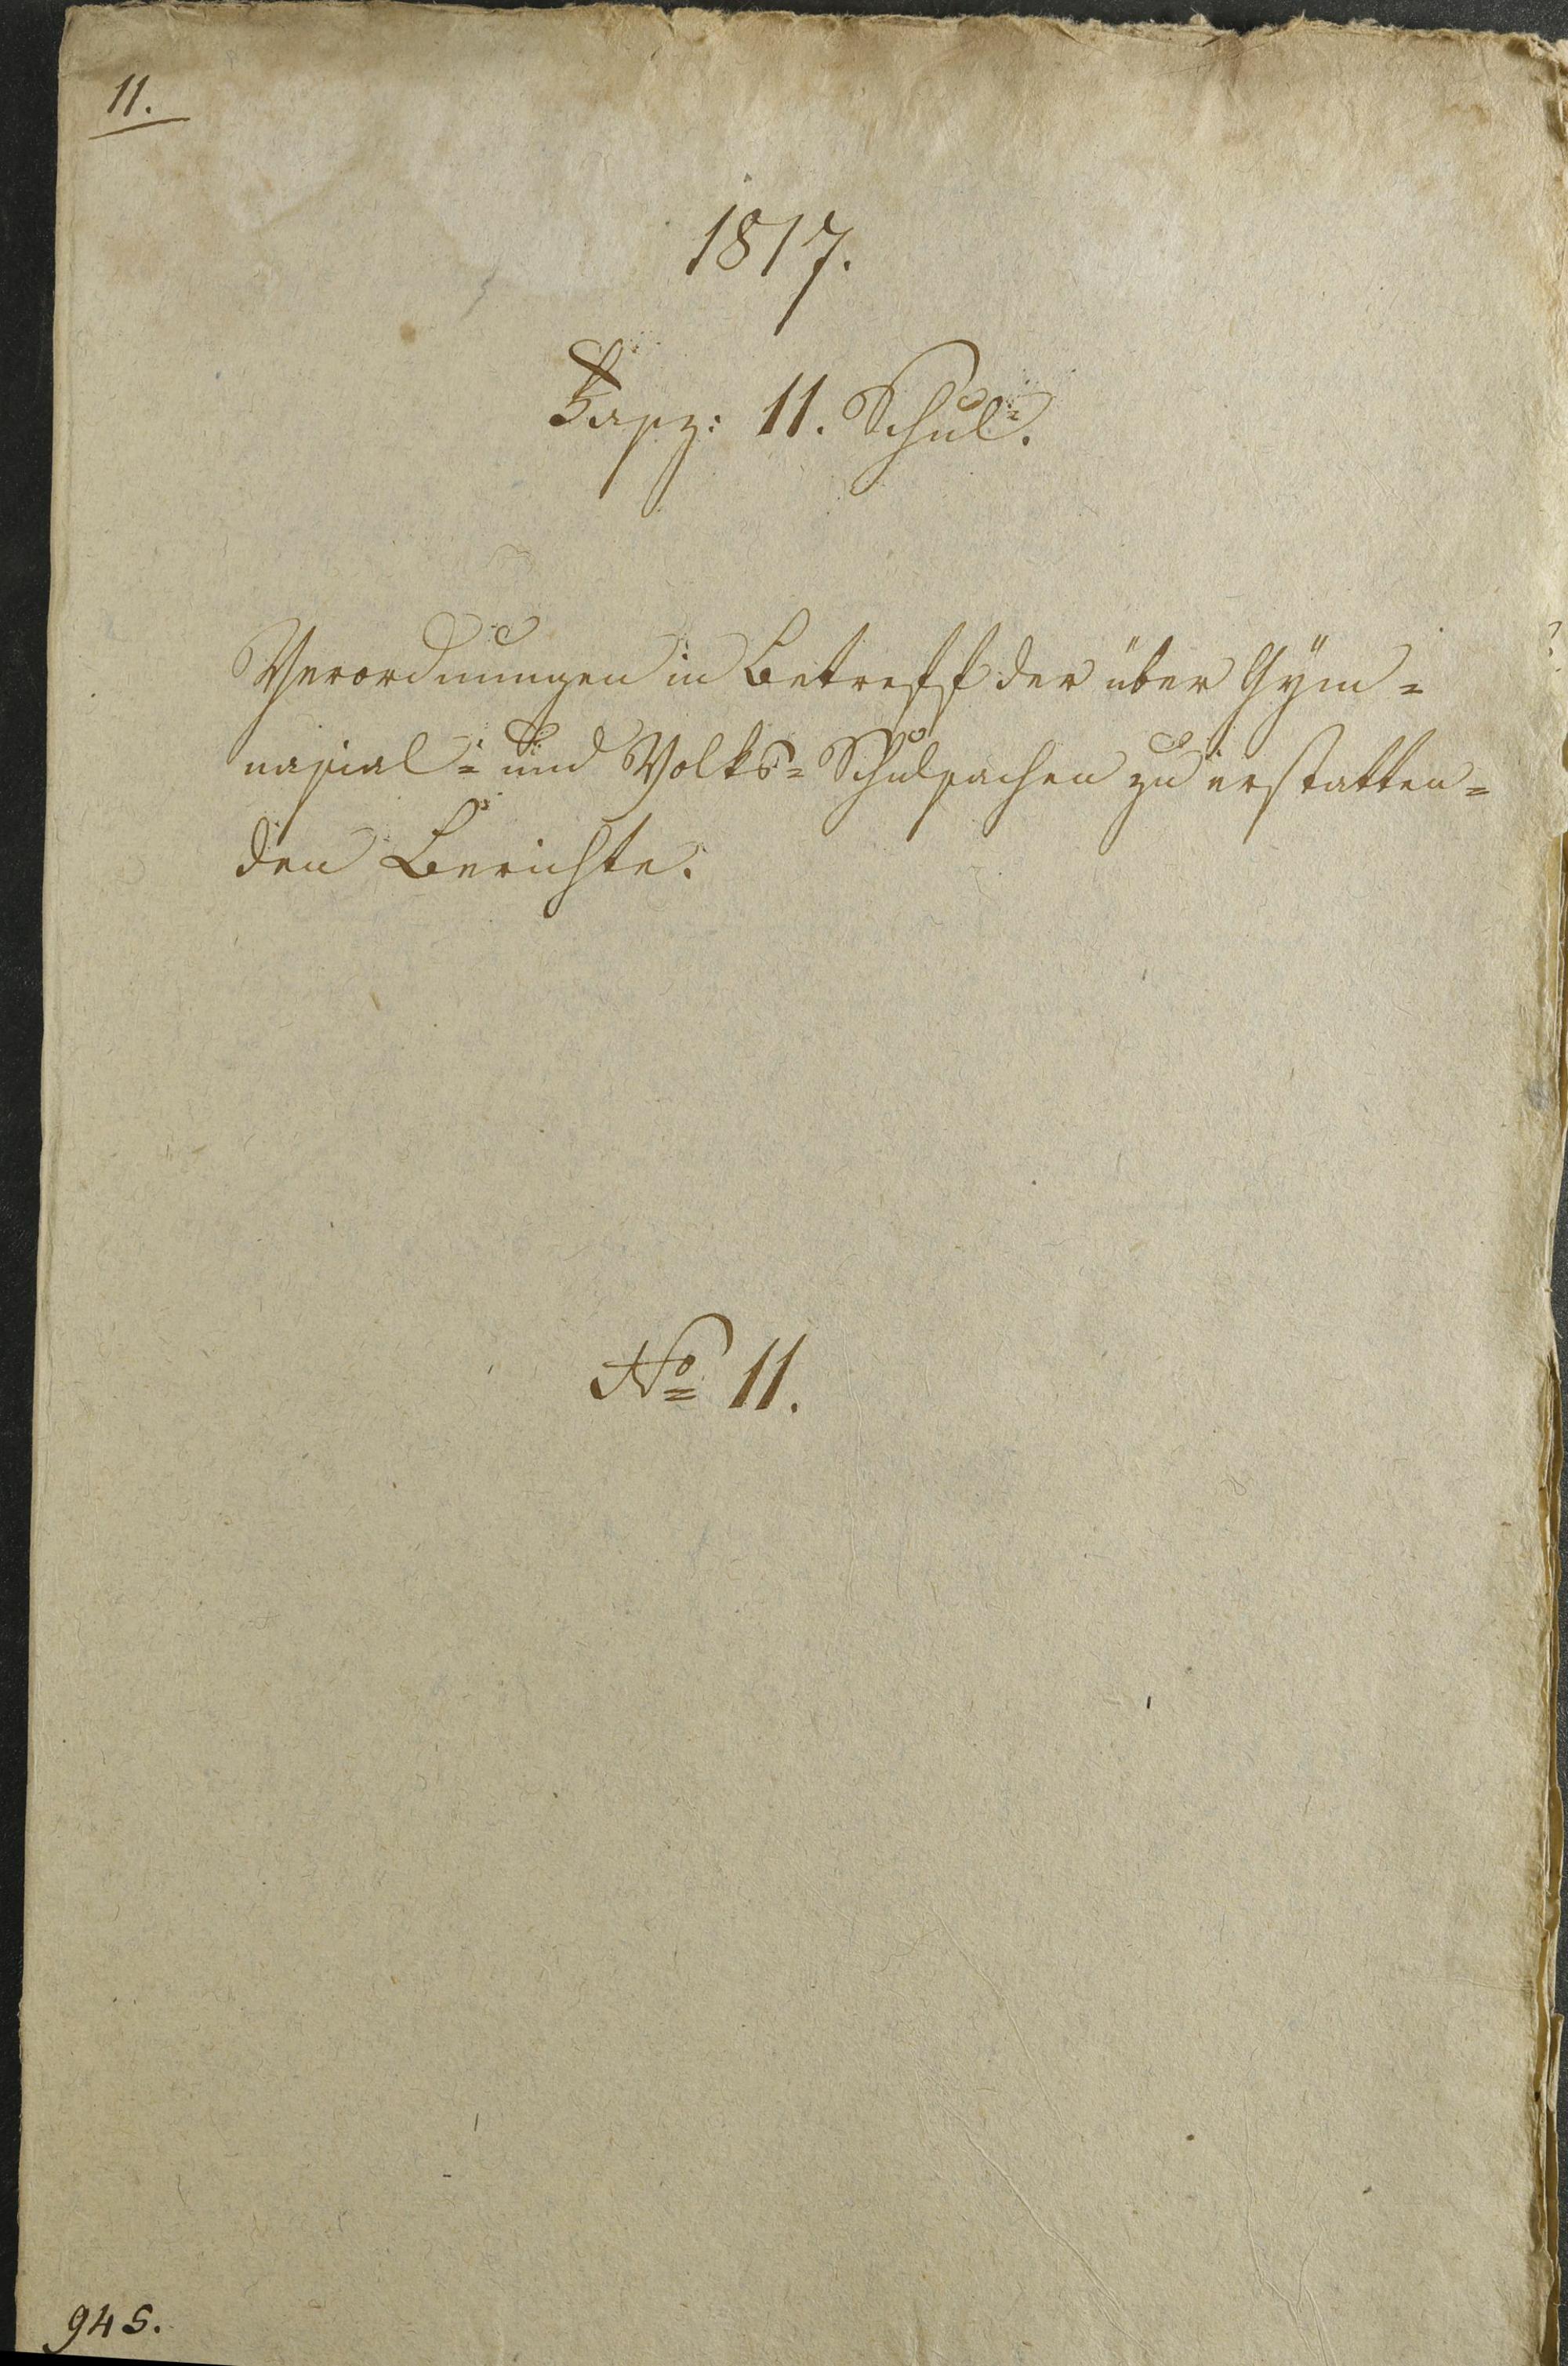 11.
1817.
Fasz: 11. Schul.
Verordnungen in Betreff der über Gÿm=
nasial= und Volks= Schulsachen zu erstatten=
den Berichte.
No 11.
945.